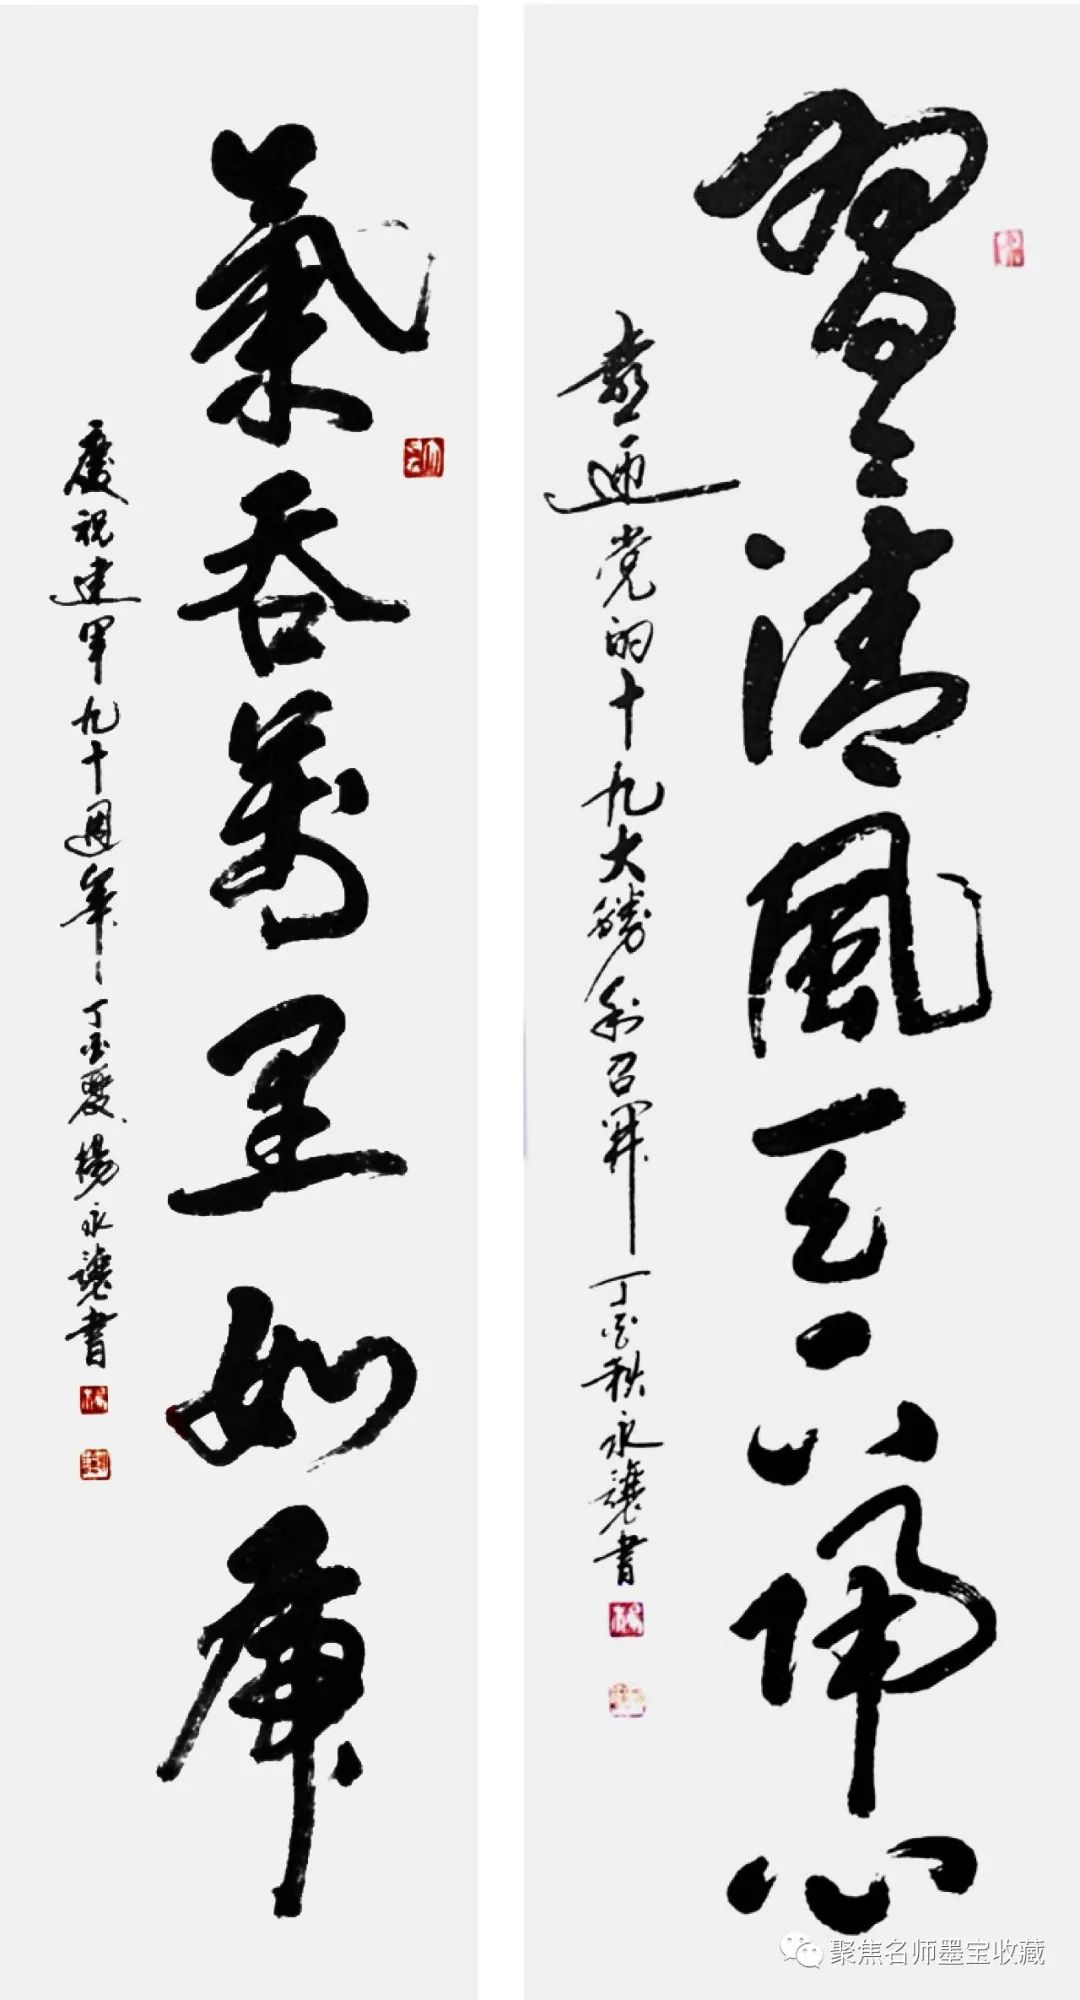 習習清風天下佩心
喜迎党的十九大勝利召開 丁酉秋永讓書
氣吞萬里如虎
慶祝建軍九十週年 丁酉夏 楊永讓書
聚焦名师墨宝收藏